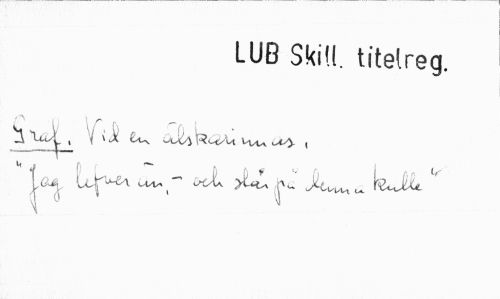 LUB Skill. titelreg.
Graf. Vid en älskarinnas.
"Jag lefver än, - och står på denna kulle"